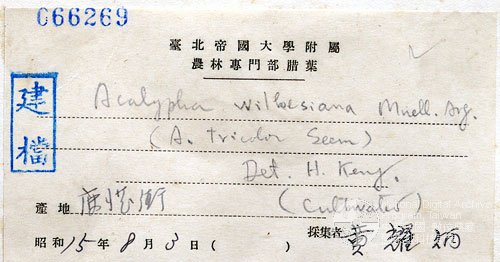 066269
臺北帝國大學附屬
農林專門部腊葉
建檔
Acalypha wilkesiana Muell. Arg.
(A. tricolor Seem)
Det. H. Keng.
(Cultivated)
產地
採集者 黃耀炳
昭和15年8月3日( )